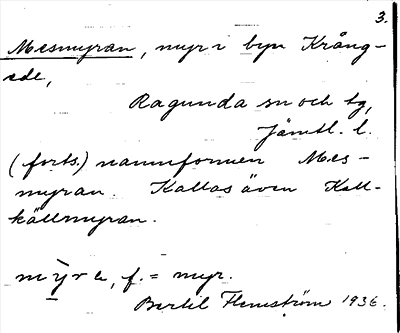 3.
Mesmyran, myr i byn Krång-
ede,
Ragunda sn och tg,
Jämtl. l.
(forts.) namnformen Mes-
myran. Kallas även Kall-
källmyran.
mỳra, f. = myr.
Bertil Flemström 1936.